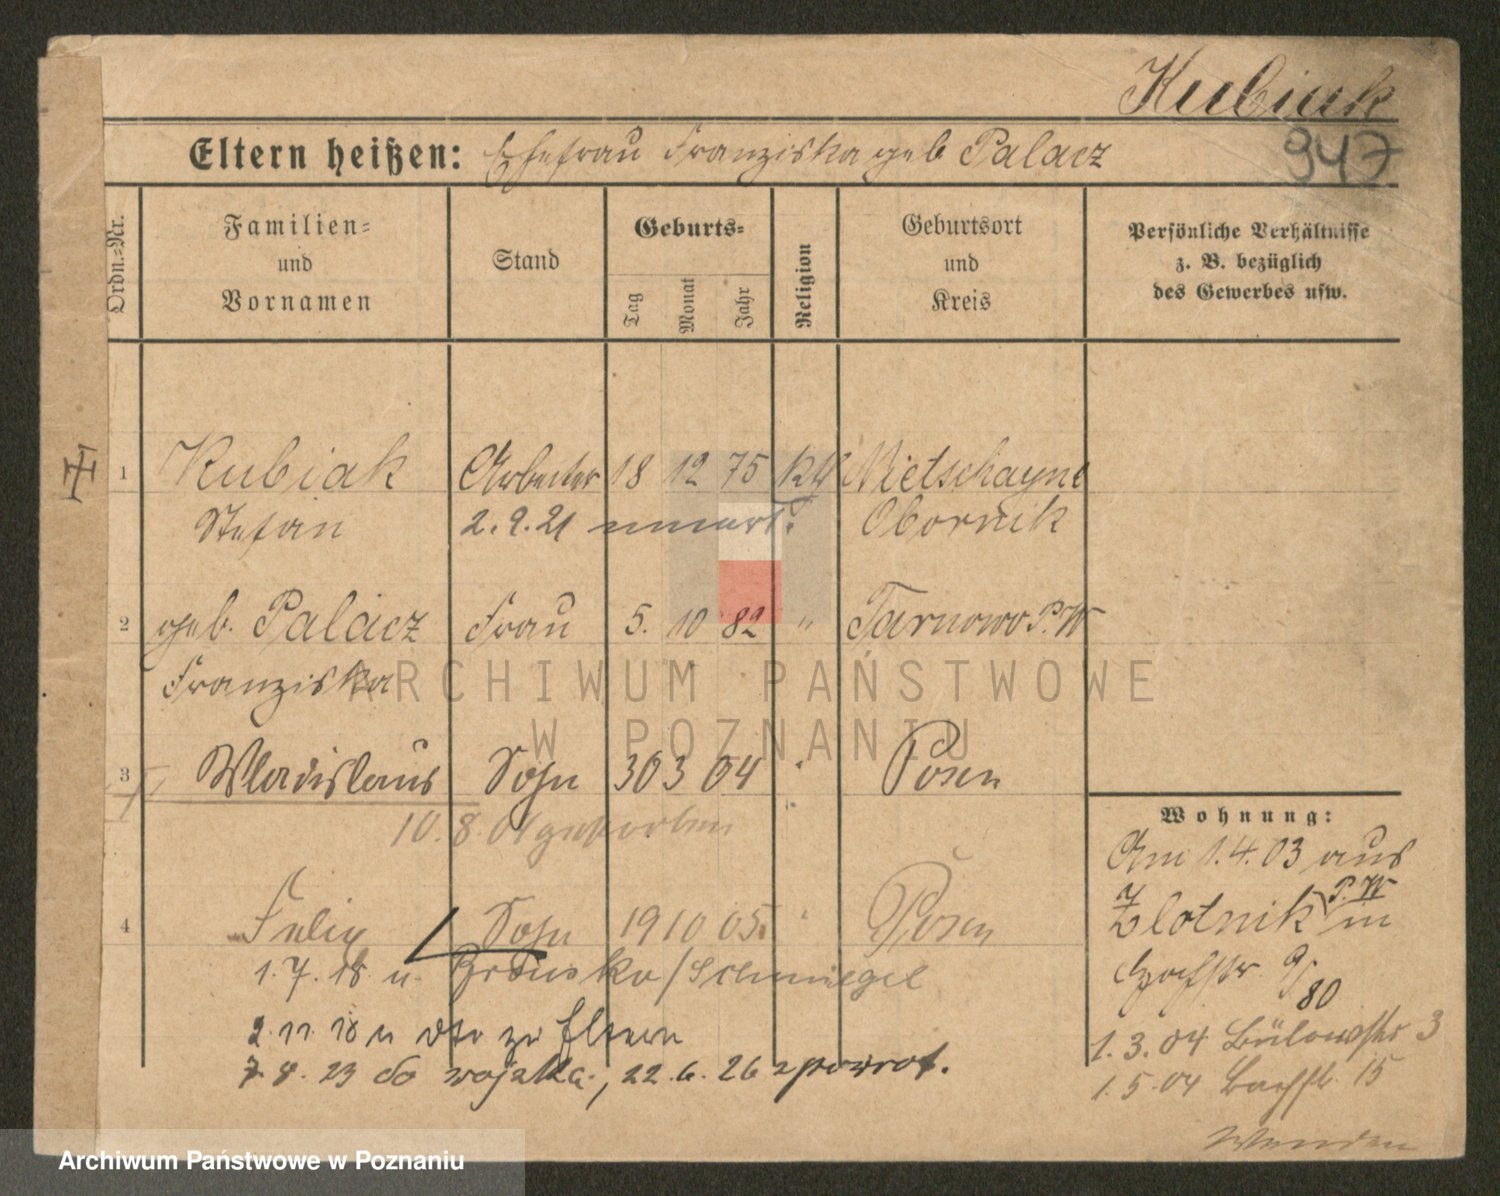 Kubiak
947
Eltern heißen: Ehefrau Franziska geb Palacz
Ordn.=Nr.
Familien=
und
Vornamen
Stand
Geburts=
Tag
Monat
Jahr
Religion
Geburtsort
und
Kreis
Persönliche Verhältnisse
z. B. bezüglich
des Gewerbes usw.
1 Kubiak Arbeiter 18 12 75 kth Nietschayne
Stefan 2.9.21 umart. Obornik
2 geb. Palacz Frau 5. 10 82 " Tarnowo P.W
Franziska
3 Wladislaus Sohn 30 3 04 " Posen
10.8.04 gestorben
4 Felix Sohn 19 10 05 " Posen
1.7.18 n. /Schmiegel
2.11.18 v zu Eltern
7 8. 23 do wojska., 22.6.26 zpowrot.
Wohnung:
Am 1.4.03 aus
Zlotnik P.W in
80
1.3.04 Bülowstr 3
1.5.04 15
Wenden
ARCHIWUM PAŃSTWOWE
W POZNANIU
Archiwum Państwowe w Poznaniu